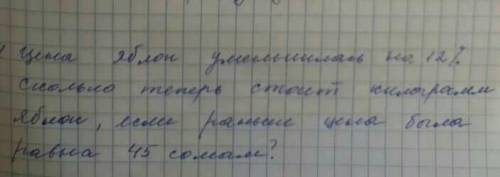 Цена яблок уменьшилась на 12%.
Сколько теперь стоит килограмм
яблок, если раньше цена была
равна 45 сомам?